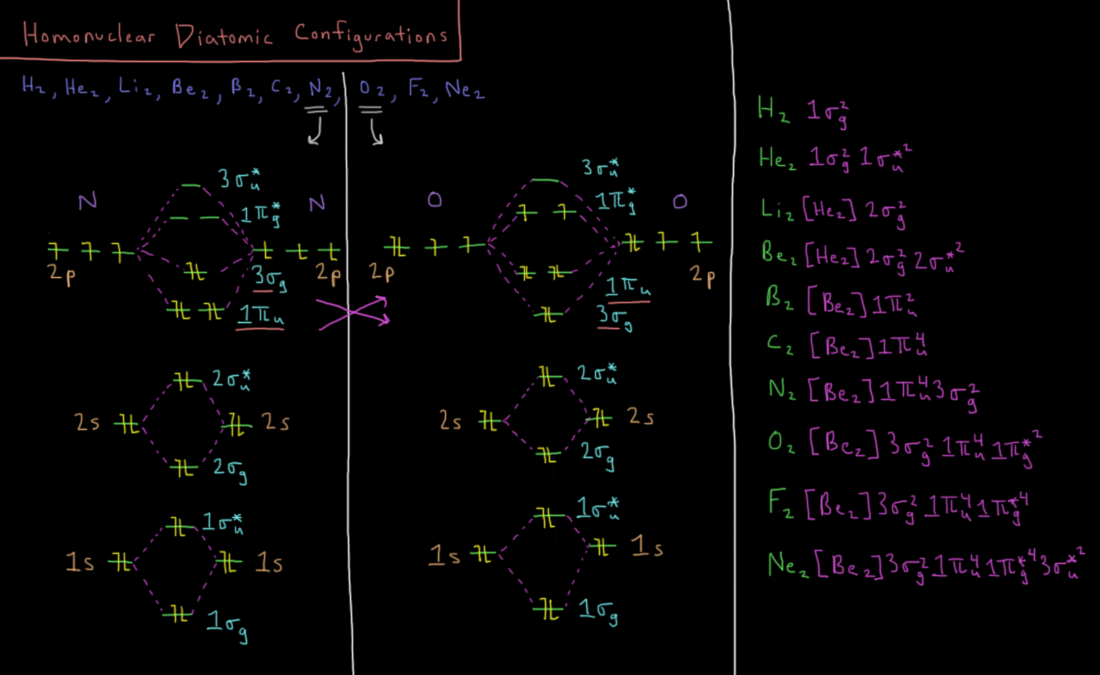 Homonuclear Diatomic Configurations
H₂, He₂, Li₂, Be₂, B₂, C₂, N₂, O₂, F₂, Ne₂
N N
3σᵤ*
1π_g*
2p 2p
3σ_g
1πᵤ
2σᵤ*
2s 2s
2σ_g
1σᵤ*
1s 1s
1σ_g
O O
3σᵤ*
1π_g*
2p 2p
1πᵤ
3σ_g
2σᵤ*
2s 2s
2σ_g
1σᵤ*
1s 1s
1σ_g
H₂ 1σ_g²
He₂ 1σ_g² 1σᵤ*²
Li₂ [He₂] 2σ_g²
Be₂ [He₂] 2σ_g² 2σᵤ*²
B₂ [Be₂] 1πᵤ²
C₂ [Be₂] 1πᵤ⁴
N₂ [Be₂] 1πᵤ⁴ 3σ_g²
O₂ [Be₂] 3σ_g² 1πᵤ⁴ 1π_g*²
F₂ [Be₂] 3σ_g² 1πᵤ⁴ 1π_g*⁴
Ne₂ [Be₂] 3σ_g² 1πᵤ⁴ 1π_g*⁴ 3σᵤ*²